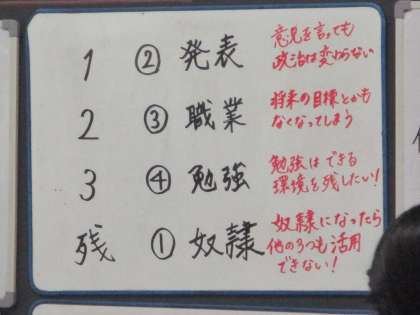 1 ② 発表 意見を言っても
政治は変わらない
2 ③ 職業 将来の目標とかも
なくなってしまう
3 ④ 勉強 勉強はできる
環境を残したい!
残 ① 奴隷 奴隷になったら
他の3つも活用
できない!